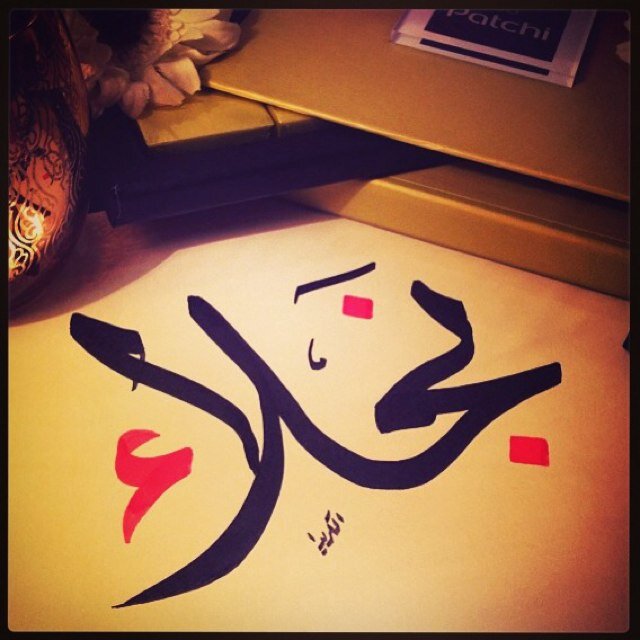 Patchi
نجلاء